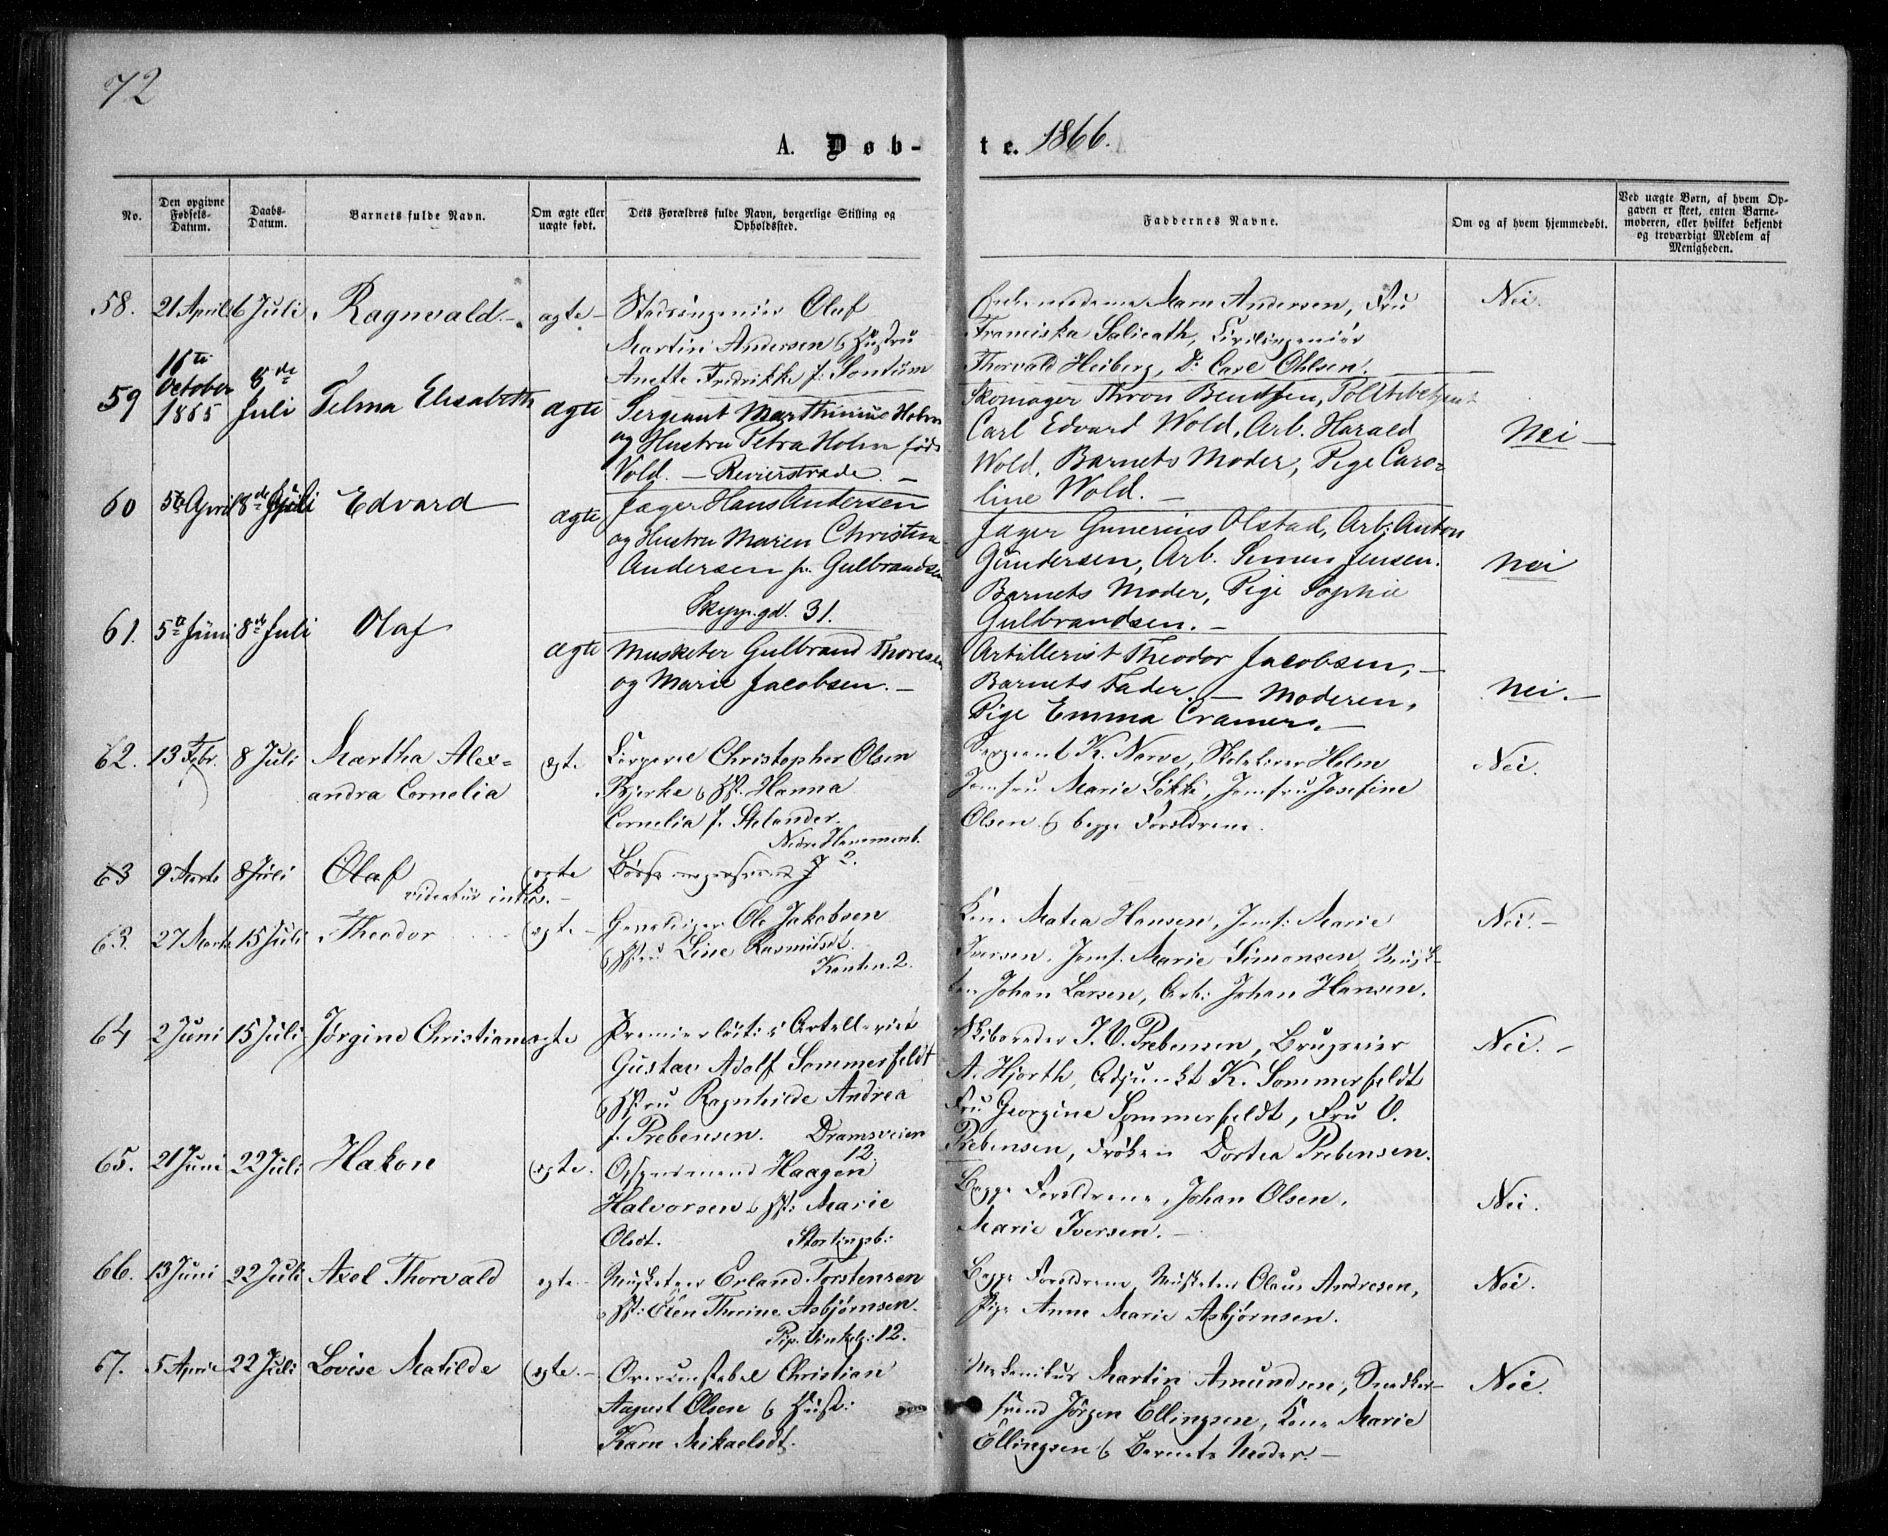 72
A. Døb-
te. 1866.
No.
Den opgivne Fødsels-Datum.
Daabs-Datum.
Barnets fulde Navn.
Om ægte eller uægte født.
Dets Forældres fulde Navn, borgerlige Stilling og Opholdssted.
Faddernes Navne.
Om og af hvem hjemmedøbt.
Ved uægte Børn, af hvem Op-
gaven er skeet, enten Barne-
moderen, eller hvilket bekjendt
og troværdigt Medlem af
Menigheden.
58. 21 April 6 Juli Ragnvald. ægte
Stadsingeniør Olaf
Martin Andersen & Hustru
Anette Fredrikke f. Sontum
Maren Andersen, Fru
Franciska Salicath, Civilingeniør
Thorvald Heiberg, Dr. Carl Ohlsen.
Nei.
59 16de October 1865 8de Juli Telma Elisabeth ægte
Sergeant Marthinius Holm
og Hustru Petra Holm født
Vold. — Revierstrade. —
Skomager Thron Bendtsen, Politibetjent
Carl Edvard Wold, Arb. Harald
Wold, Barnets Moder, Pige Caro-
line Wold. —
Nei —
60 5te April 8de Juli Edvard ægte
Jæger Hans Andersen
og Hustru Maren Christine
Andersen f. Gulbrandsen
Skipp.gd. 31.
Jæger Gunerius Olstad, Arb. Anton
Gundersen, Arb. Simen Jensen.
Barnets Moder, Pige Sophie
Gulbrandsen. —
Nei
61. 5te Juni 8de Juli Olaf ægte
Musketer Gulbrand Thoresen
og Marie Jacobsen. —
Artillerist Theodor Jacobsen, —
Barnets Fader. — Moderen,
Pige Emma Cramer. —
Nei. —
62. 13 Febr. 8 Juli Martha Alex-
andra Cornelia ægte
Christopher Olsen
Bjerke & H. Hanna
Cornelia f. Stelander.
Nedre Hammersb.
Sergeant K. Narve, Holm
Jomfru Marie Løkke, Jomfru Josefine
Olsen & begge Forældrene.
Nei.
63 9 Marts 8 Juli Olaf ægte
videatur infra. —
63. 27 Marts 15 Juli Theodor ægte
Ole Jakobsen
& Hstru Line Rasmusdt.
2.
Kone Matea Hansen, Jomf: Marie
Iversen, Jomf. Marie Simonsen,
Johan Larsen, Arb: Johan Hansen.
Nei. —
64 2 Juni 15 Juli Jørgine Christiane ægte
Premierløit: i Artelleriet
Gustav Adolf Sommerfeldt
& Hstru Ragnhilde Andrea
f. Prebensen. Dramsveien
12.
Skibsreder J. V. Prebensen, Brugseier
A. Hjorth, Adjunkt K. Sommerfeldt
Fru Georgine Sommerfeldt, Fru V.
Prebensen, Frøken Dortea Prebensen.
Nei. —
65. 21 Juni 22 Juli Hakon ægte.
Opsynsmand Haagen
Halvorsen & H: Marie
Olsdt. Stortingsb:
Begge Forældrene, Johan Olsen,
Marie Iversen. —
Nei.
66. 13 Juni 22 Juli Axel Thorvald ægte
Musketeer Erland Torstensen
& H: Olen Thrine Asbjørnsen.
Pip. Vinkelg: 12.
Begge Forældrene, Musketeer Olaus Andresen,
Pige Anne Marie Asbjørnsen.
Nei.
67. 5 April 22 Juli Lovise Matilde ægte. —
Overconstabel Christian
August Olsen & Hust:
Karn Mikaelsdt.
Mekanikus Martin Amundsen, Snedker-
svend Jørgen Ellingsen, Kone Marie
Ellingsen & Barnets Moder. —
Nei.